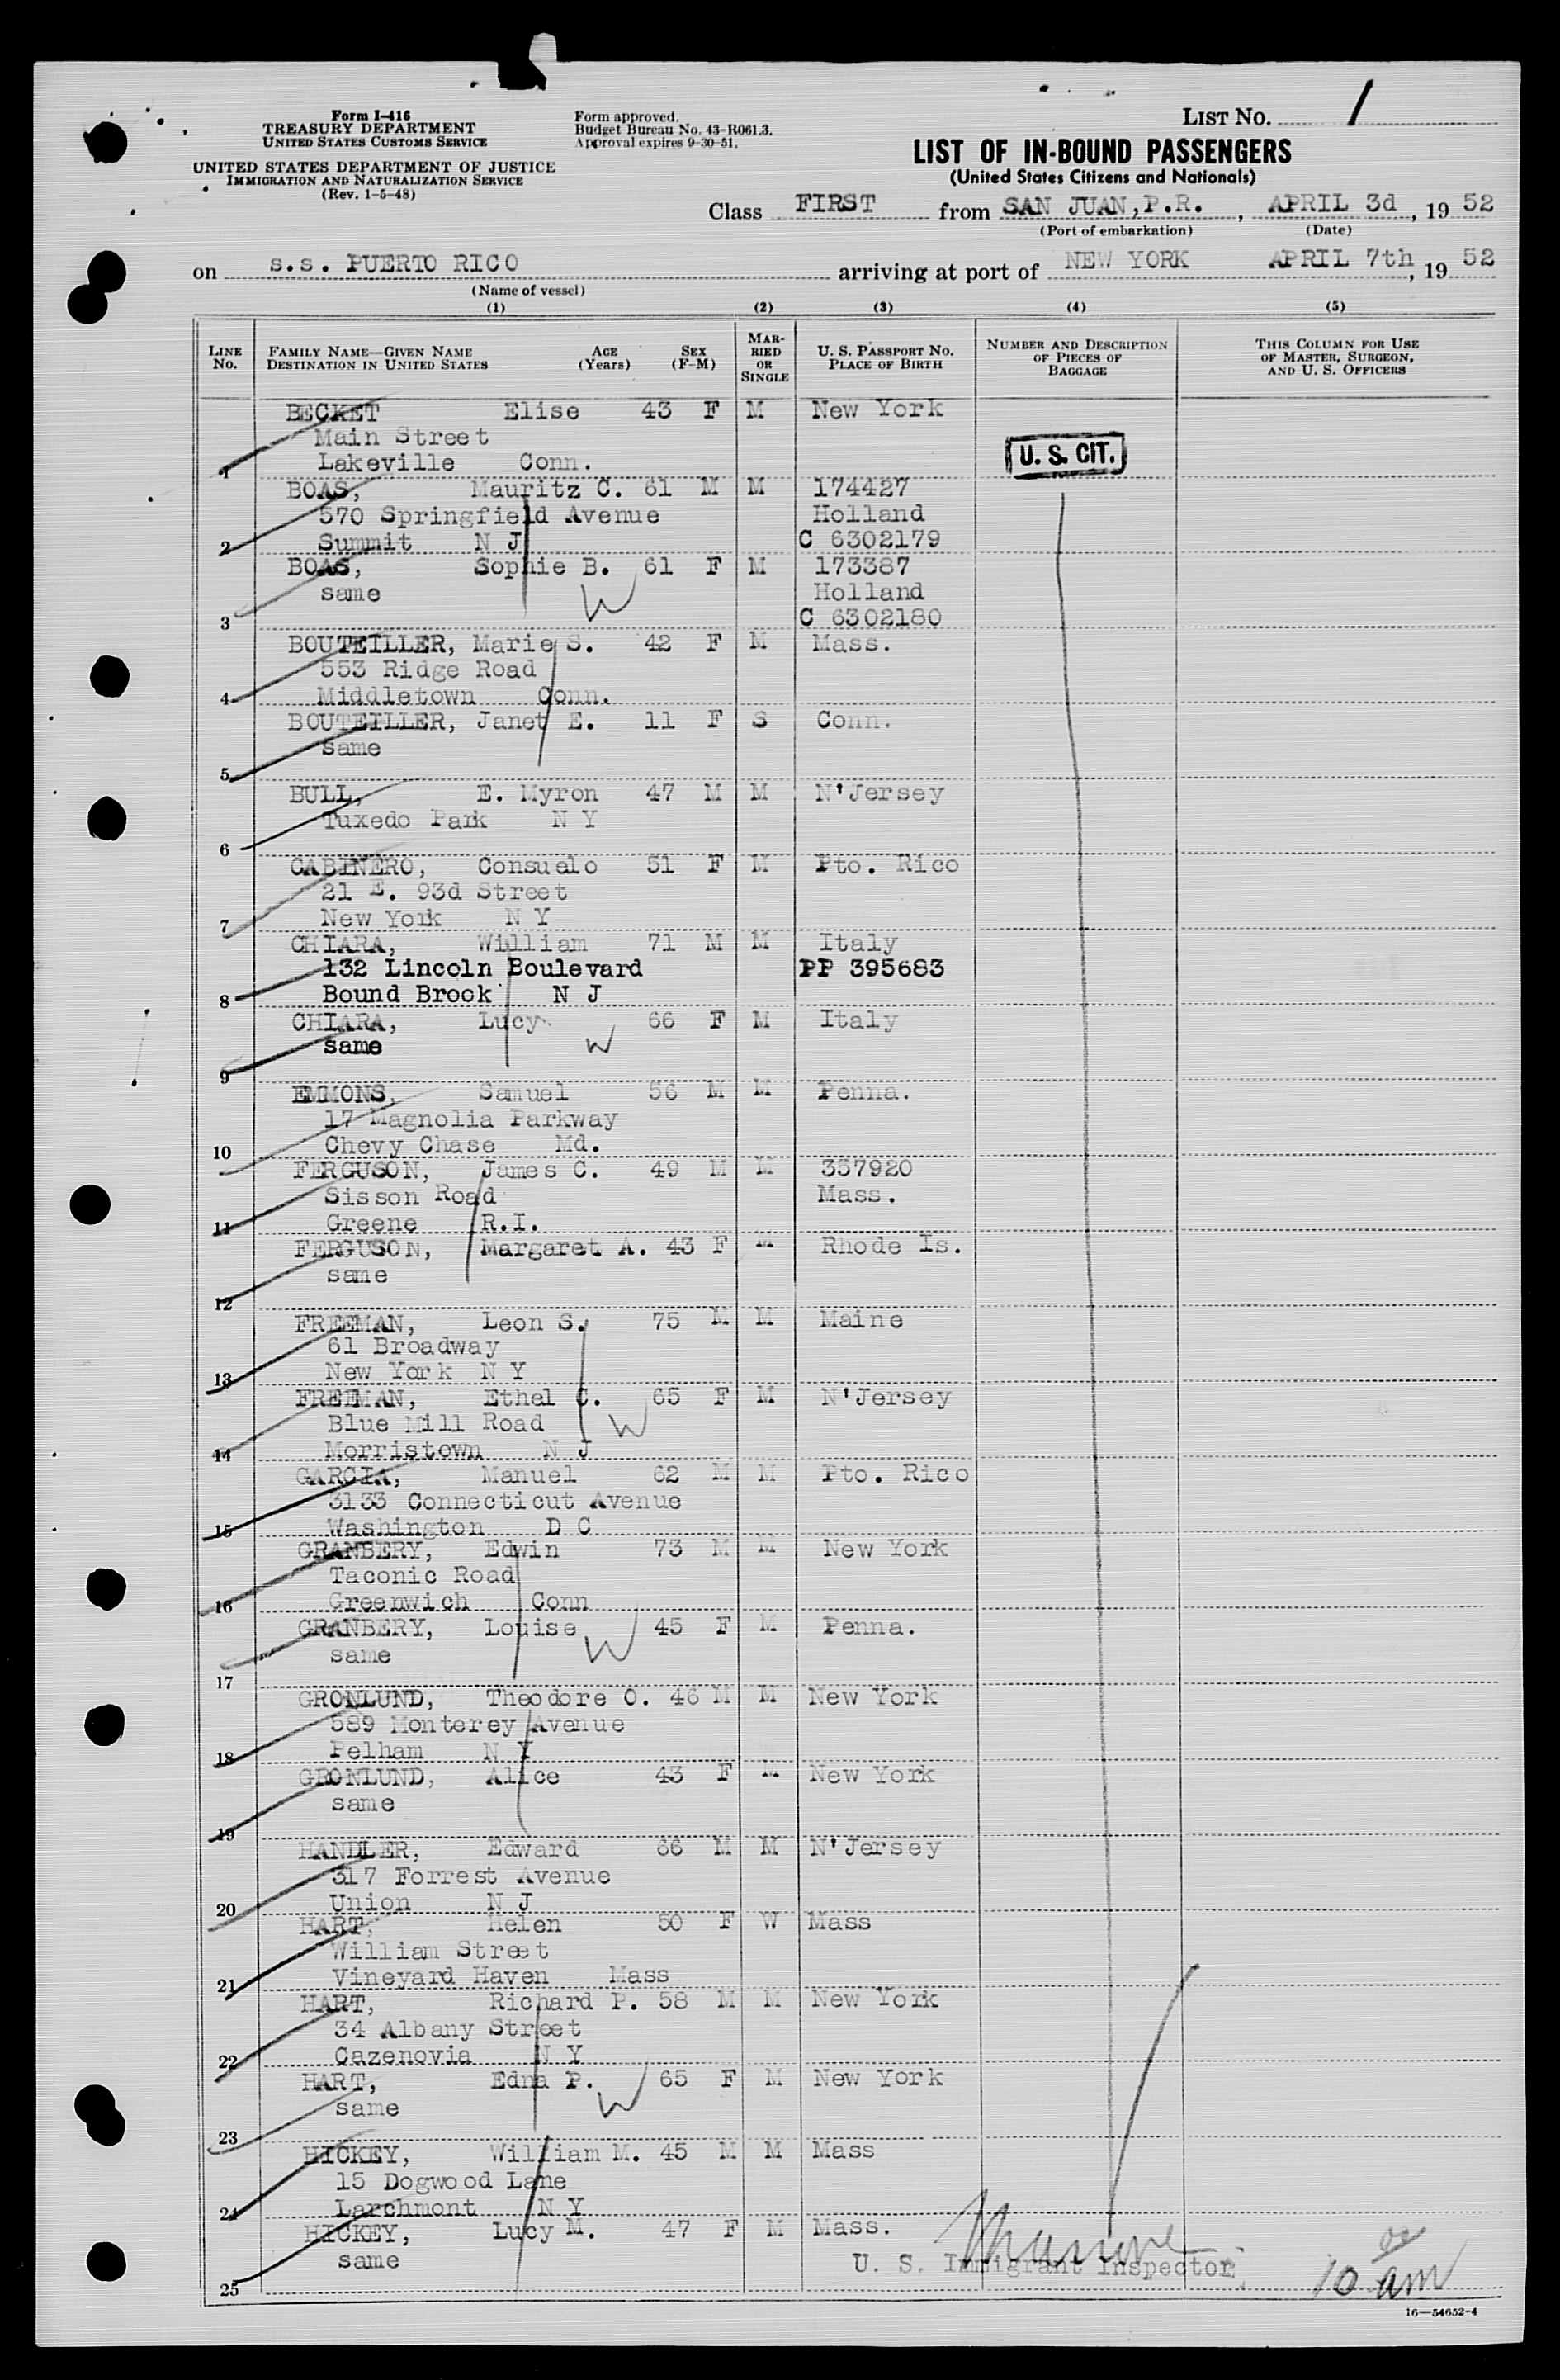 Form I-416
TREASURY DEPARTMENT
UNITED STATES CUSTOMS SERVICE
UNITED STATES DEPARTMENT OF JUSTICE
IMMIGRATION AND NATURALIZATION SERVICE
(Rev. 1-5-48)
Form approved.
Budget Bureau No. 43-R061.3.
Approval expires 9-30-51.
LIST NO. 1
LIST OF IN-BOUND PASSENGERS
(United States Citizens and Nationals)
Class FIRST from SAN JUAN, P.R. , APRIL 3d , 19 52
(Port of embarkation) (Date)
on s.s. PUERTO RICO arriving at port of NEW YORK APRIL 7th , 19 52
(Name of vessel)
(1) (2) (3) (4) (5)
LINE NO. FAMILY NAME—GIVEN NAME DESTINATION IN UNITED STATES AGE (Years) SEX (F-M) MARRIED OR SINGLE U. S. PASSPORT NO. PLACE OF BIRTH NUMBER AND DESCRIPTION OF PIECES OF BAGGAGE THIS COLUMN FOR USE OF MASTER, SURGEON, AND U. S. OFFICERS
BECKET Elise 43 F M New York
Main Street
1 Lakeville Conn. U. S. CIT.
BOAS, Mauritz C. 61 M M 174427
570 Springfield Avenue Holland
2 Summit N J C 6302179
BOAS, Sophie B. 61 F M 173387
same W Holland
3 C 6302180
BOUTEILLER, Marie S. 42 F M Mass.
553 Ridge Road
4 Middletown Conn.
BOUTEILLER, Janet E. 11 F S Conn.
same
5
BULL, E. Myron 47 M M N'Jersey
Tuxedo Park N Y
6
CABINERO, Consuelo 51 F M Pto. Rico
21 E. 93d Street
7 New York N Y
CHIARA, William 71 M M Italy
132 Lincoln Boulevard PP 395683
8 Bound Brook N J
CHIARA, Lucy 66 F M Italy
same W
9
EMMONS, Samuel 56 M M Penna.
17 Magnolia Parkway
10 Chevy Chase Md.
FERGUSON, James C. 49 M M 357920
Sisson Road Mass.
11 Greene R.I.
FERGUSON, Margaret A. 43 F M Rhode Is.
same
12
FREEMAN, Leon S. 75 M M Maine
61 Broadway
13 New York N Y
FREEMAN, Ethel C. 65 F M N'Jersey
Blue Mill Road W
14 Morristown N J
GARCIA, Manuel 62 M M Pto. Rico
3133 Connecticut Avenue
15 Washington D C
GRANBERY, Edwin 73 M M New York
Taconic Road
16 Greenwich Conn
GRANBERY, Louise 45 F M Penna.
same W
17
GRONLUND, Theodore O. 46 M M New York
589 Monterey Avenue
18 Pelham N Y
GRONLUND, Alice 43 F M New York
same
19
HANDLER, Edward 66 M M N'Jersey
317 Forrest Avenue
20 Union N J
HART, Helen 50 F W Mass
William Street
21 Vineyard Haven Mass
HART, Richard P. 58 M M New York
34 Albany Street
22 Cazenovia N Y
HART, Edna P. 65 F M New York
same W
23
HICKEY, William M. 45 M M Mass
15 Dogwood Lane
24 Larchmont N Y
HICKEY, Lucy M. 47 F M Mass.
same U. S. Immigrant Inspector
25 10 00 am
16—54652-4